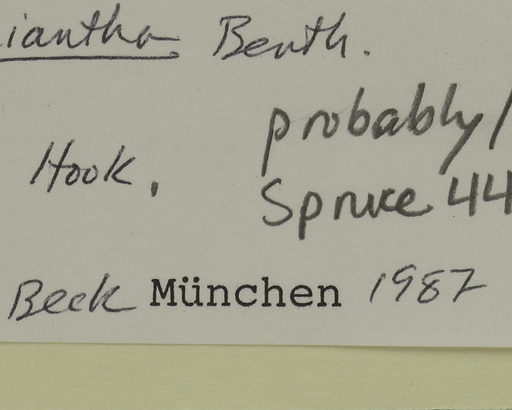 iantha Benth.
probably/
Hook.
Spruce 44
Beck München 1987